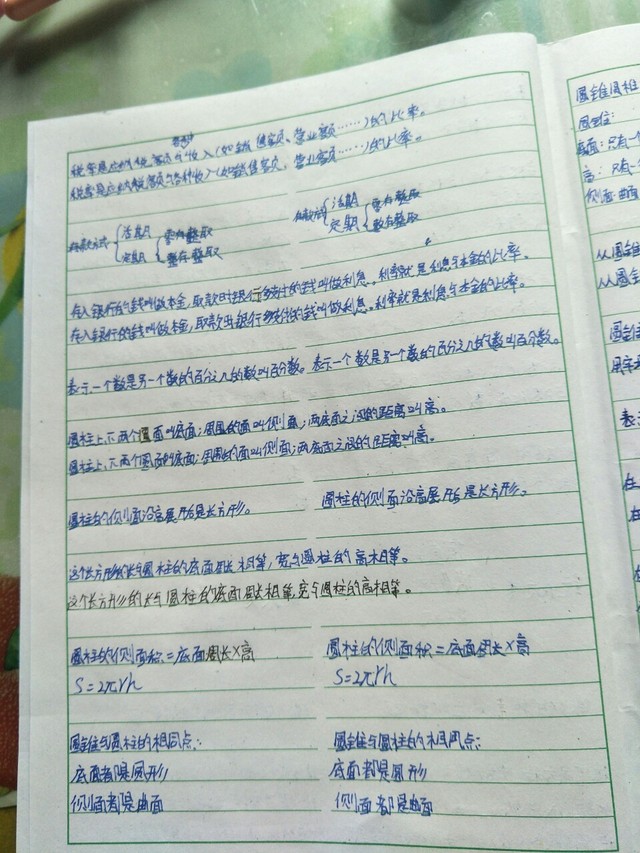 各种
税率是应纳税额与收入(如销售额、营业额……)的比率。
税率是应纳税额与各种收入(如销售额、营业额……)的比率。
存款方式 活期 定期 零存整取 整存整取
存款方式 活期 定期 零存整取 整存整取
存入银行的钱叫做本金,取款时银行多支付的钱叫做利息。利率就是利息与本金的比率。
存入银行的钱叫做本金,取款时银行多支付的钱叫做利息。利率就是利息与本金的比率。
表示一个数是另一个数的百分之几的数叫百分数。表示一个数是另一个数的百分之几的数叫百分数。
圆柱上、下两个圆面叫底面;周围的面叫侧面;两底面之间的距离叫高。
圆柱上、下两个圆面叫底面;周围的面叫侧面;两底面之间的距离叫高。
圆柱的侧面沿高展开是长方形。 圆柱的侧面沿高展开是长方形。
这个长方形的长与圆柱的底面周长相等,宽与圆柱的高相等。
这个长方形的长与圆柱的底面周长相等,宽与圆柱的高相等。
圆柱的侧面积=底面周长×高 圆柱的侧面积=底面周长×高
S=2πrh S=2πrh
圆锥与圆柱的相同点: 圆锥与圆柱的相同点:
底面都是圆形 底面都是圆形
侧面都是曲面 侧面都是曲面
圆锥圆柱
底面:只有一
高:只有一
侧面:曲面
从圆锥
从圆锥
圆锥
表